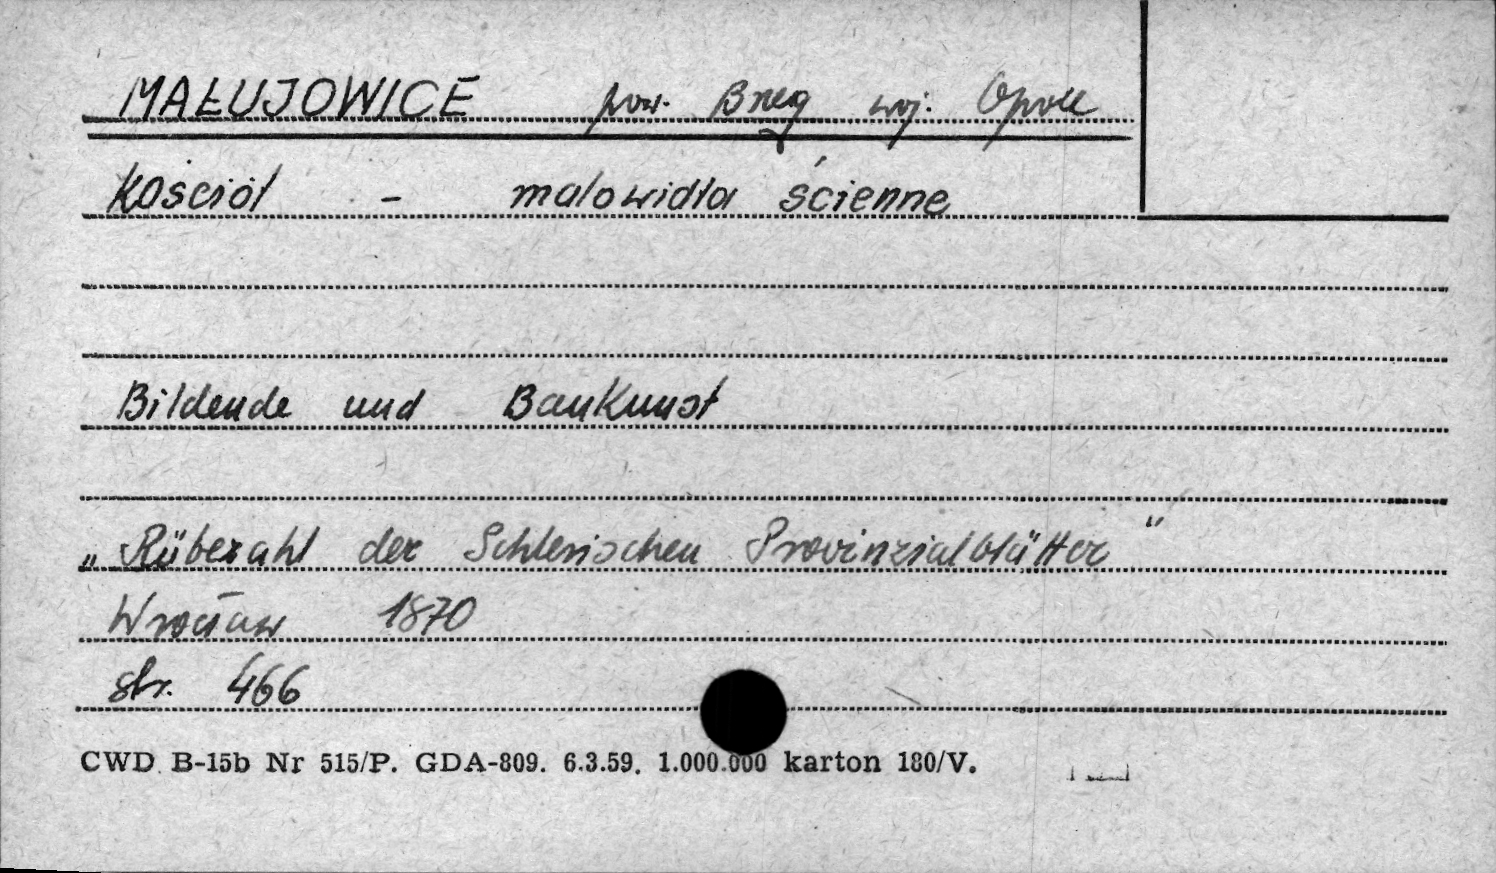 MAŁUJOWICE pow. Brzeg woj. Opole
Kościół - malowidła ścienne
Bildende und Baukunst
„Rübezahl der Schlesischen Provinzialblätter"
Wrocław 1870
str. 466
CWD B-15b Nr 515/P. GDA-809. 6.3.59. 1.000.000 karton 180/V.